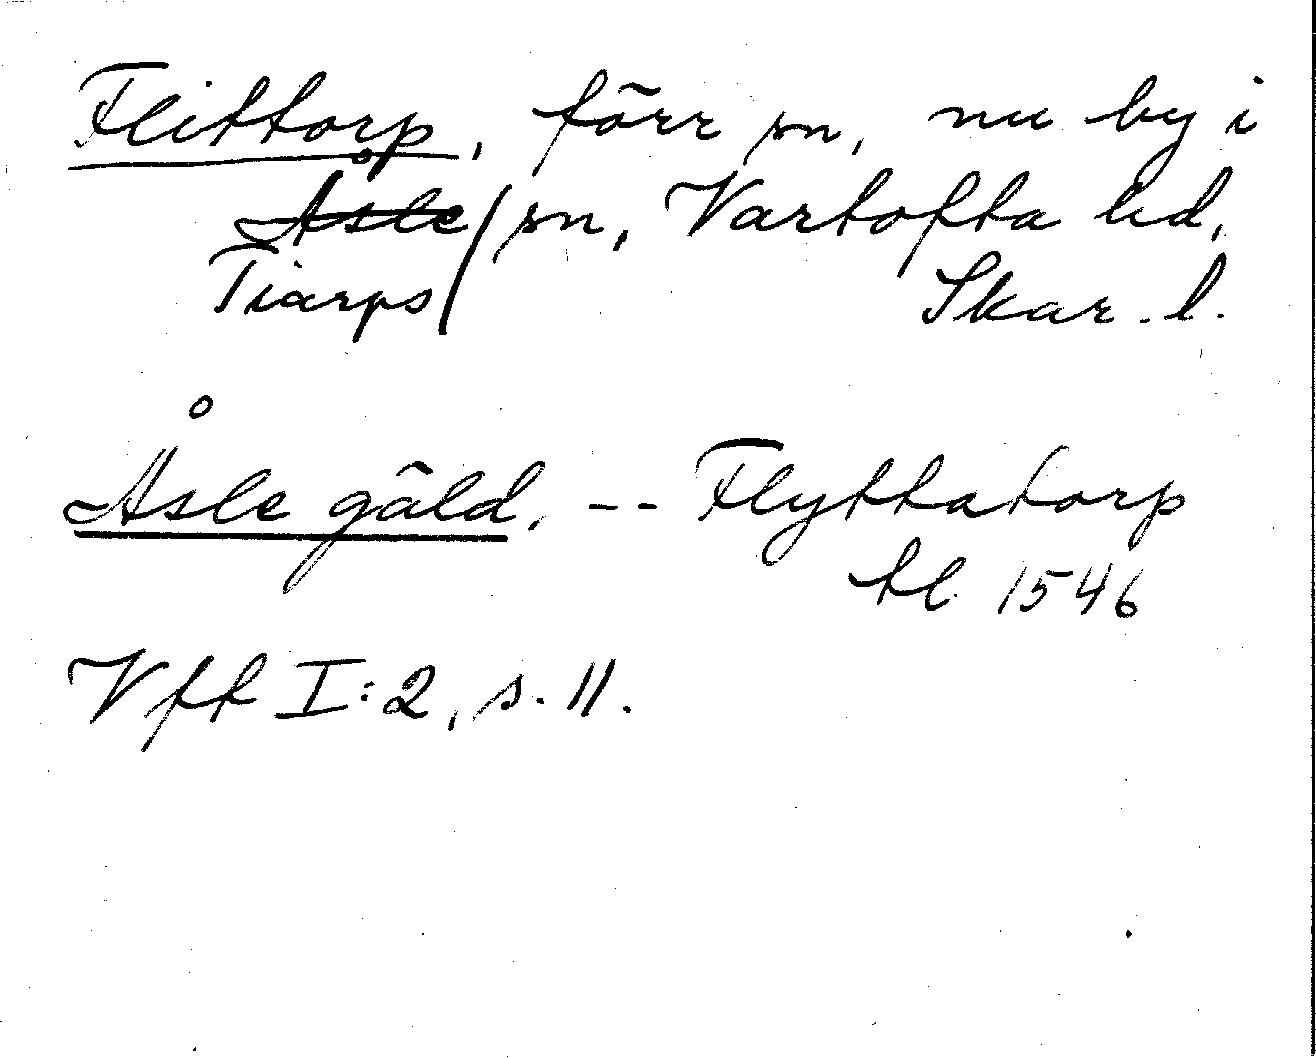 Flittorp, förr sn, nu by i
Åsle/sn, Vartofta hd,
Tiarps Skar. l.
Åsle gäld. -- Flyttatorp
tl 1546
Vft I:2, s. 11.